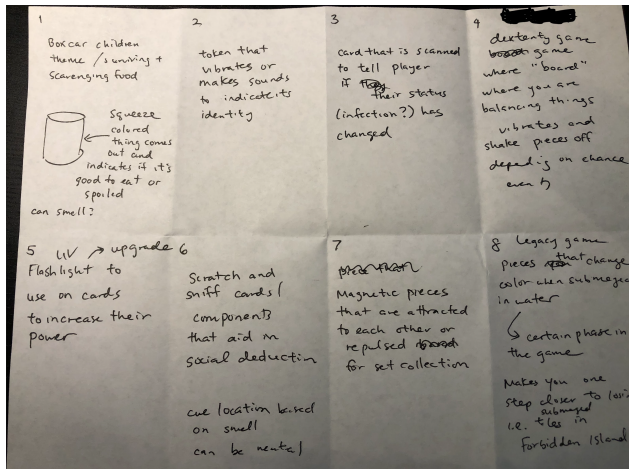 1
Boxcar children
theme / surviving +
scavenging food
Squeeze
colored
thing comes
out and
indicates if it's
good to eat or
spoiled
can smell?
2
token that
vibrates or
makes sounds
to indicate its
identity
3
card that is scanned
to tell player
if their status
(infection?) has
changed
4
dexterity game
game
where "board"
where you are
balancing things
vibrates and
shake pieces off
depedig on chance
event
5
UV → upgrade
Flashlight to
use on cards
to increase their
power
6
Scratch and
sniff cards /
components
that aid in
social deduction
cue location based
on smell
can be neutral
7
Magnetic pieces
that are attracted
to each other or
repulsed
for set collection
8 legacy game
pieces that change
color when submerged
in water
certain phase in
the game
Makes you one
step closer to losi
submerged
i.e. tiles in
Forbidden Island